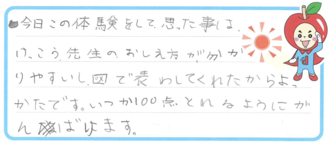 ●今日この体験をして、思った事は、
けっこう先生のおしえ方が分か
りやすいし、図で表わしてくれたからよ
かたです。いつか100点とれるようにが
んばります。